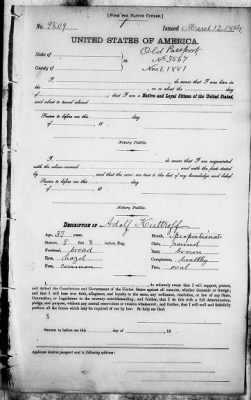 [FORM FOR NATIVE CITIZEN.]
No. 9809 Issued March 12, 1884
UNITED STATES OF AMERICA.
State of
County of
Old Passport
No. 3567
Nov. 1. 1881
I, , do swear that I was born in
the , on or about the day
of , that I am a Native and Loyal Citizen of the United States,
and about to travel abroad.
Sworn to before me this day
of , 18
Notary Public.
I, , do swear that I am acquainted
with the above named , and with the facts
stated by , and that the same are true to the best of my knowledge and belief.
Sworn to before me this day
of , 18
Notary Public.
DESCRIPTION OF Adolf Kuttroff
Age, 37 years. Mouth, proportionate
Stature, 5 feet 8 inches, Eng. Chin, round
Forehead, broad Hair, brown
Eyes, hazel Complexion, healthy
Nose, common Face, oval
I, , do solemnly swear that I will support, protect,
and defend the Constitution and Government of the United States against all enemies, whether domestic or foreign;
and that I will bear true faith, allegiance, and loyalty to the same, any ordinance, resolution, or law of any State,
Convention, or Legislature to the contrary notwithstanding; and further, that I do this with a full determination,
pledge, and purpose, without any mental reservation or evasion whatsoever; and further, that I will well and faithfully
perform all the duties which may be required of me by law. So help me God.
Sworn to before me this day of , 18
Applicant desires passport sent to following address: